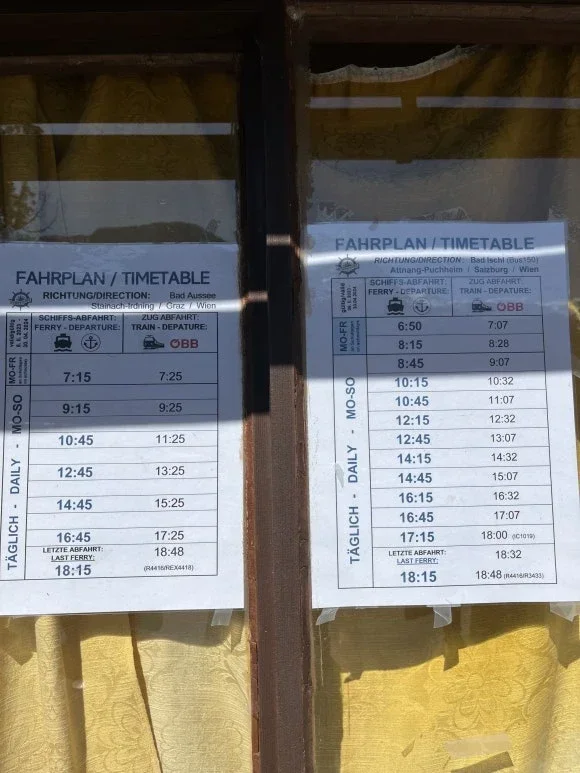 FAHRPLAN / TIMETABLE
RICHTUNG/DIRECTION: Bad Aussee
Stainach-Irdning / Graz / Wien
SCHIFFS-ABFAHRT: ZUG ABFAHRT:
FERRY - DEPARTURE: TRAIN - DEPATURE:
ÖBB
MO-FR
7:15 7:25
TÄGLICH - DAILY - MO-SO
9:15 9:25
10:45 11:25
12:45 13:25
14:45 15:25
16:45 17:25
LETZTE ABFAHRT: 18:48
LAST FERRY:
18:15 (R4416/REX4418)
FAHRPLAN / TIMETABLE
RICHTUNG/DIRECTION: Bad Ischl (Bus150)
Attnang-Puchheim / Salzburg / Wien
SCHIFFS-ABFAHRT: ZUG ABFAHRT:
FERRY - DEPARTURE: TRAIN - DEPATURE:
ÖBB
MO-FR
6:50 7:07
8:15 8:28
TÄGLICH - DAILY - MO-SO
8:45 9:07
10:15 10:32
10:45 11:07
12:15 12:32
12:45 13:07
14:15 14:32
14:45 15:07
16:15 16:32
16:45 17:07
17:15 18:00 (IC1019)
LETZTE ABFAHRT: 18:32
LAST FERRY:
18:15 18:48 (R4416/R3433)